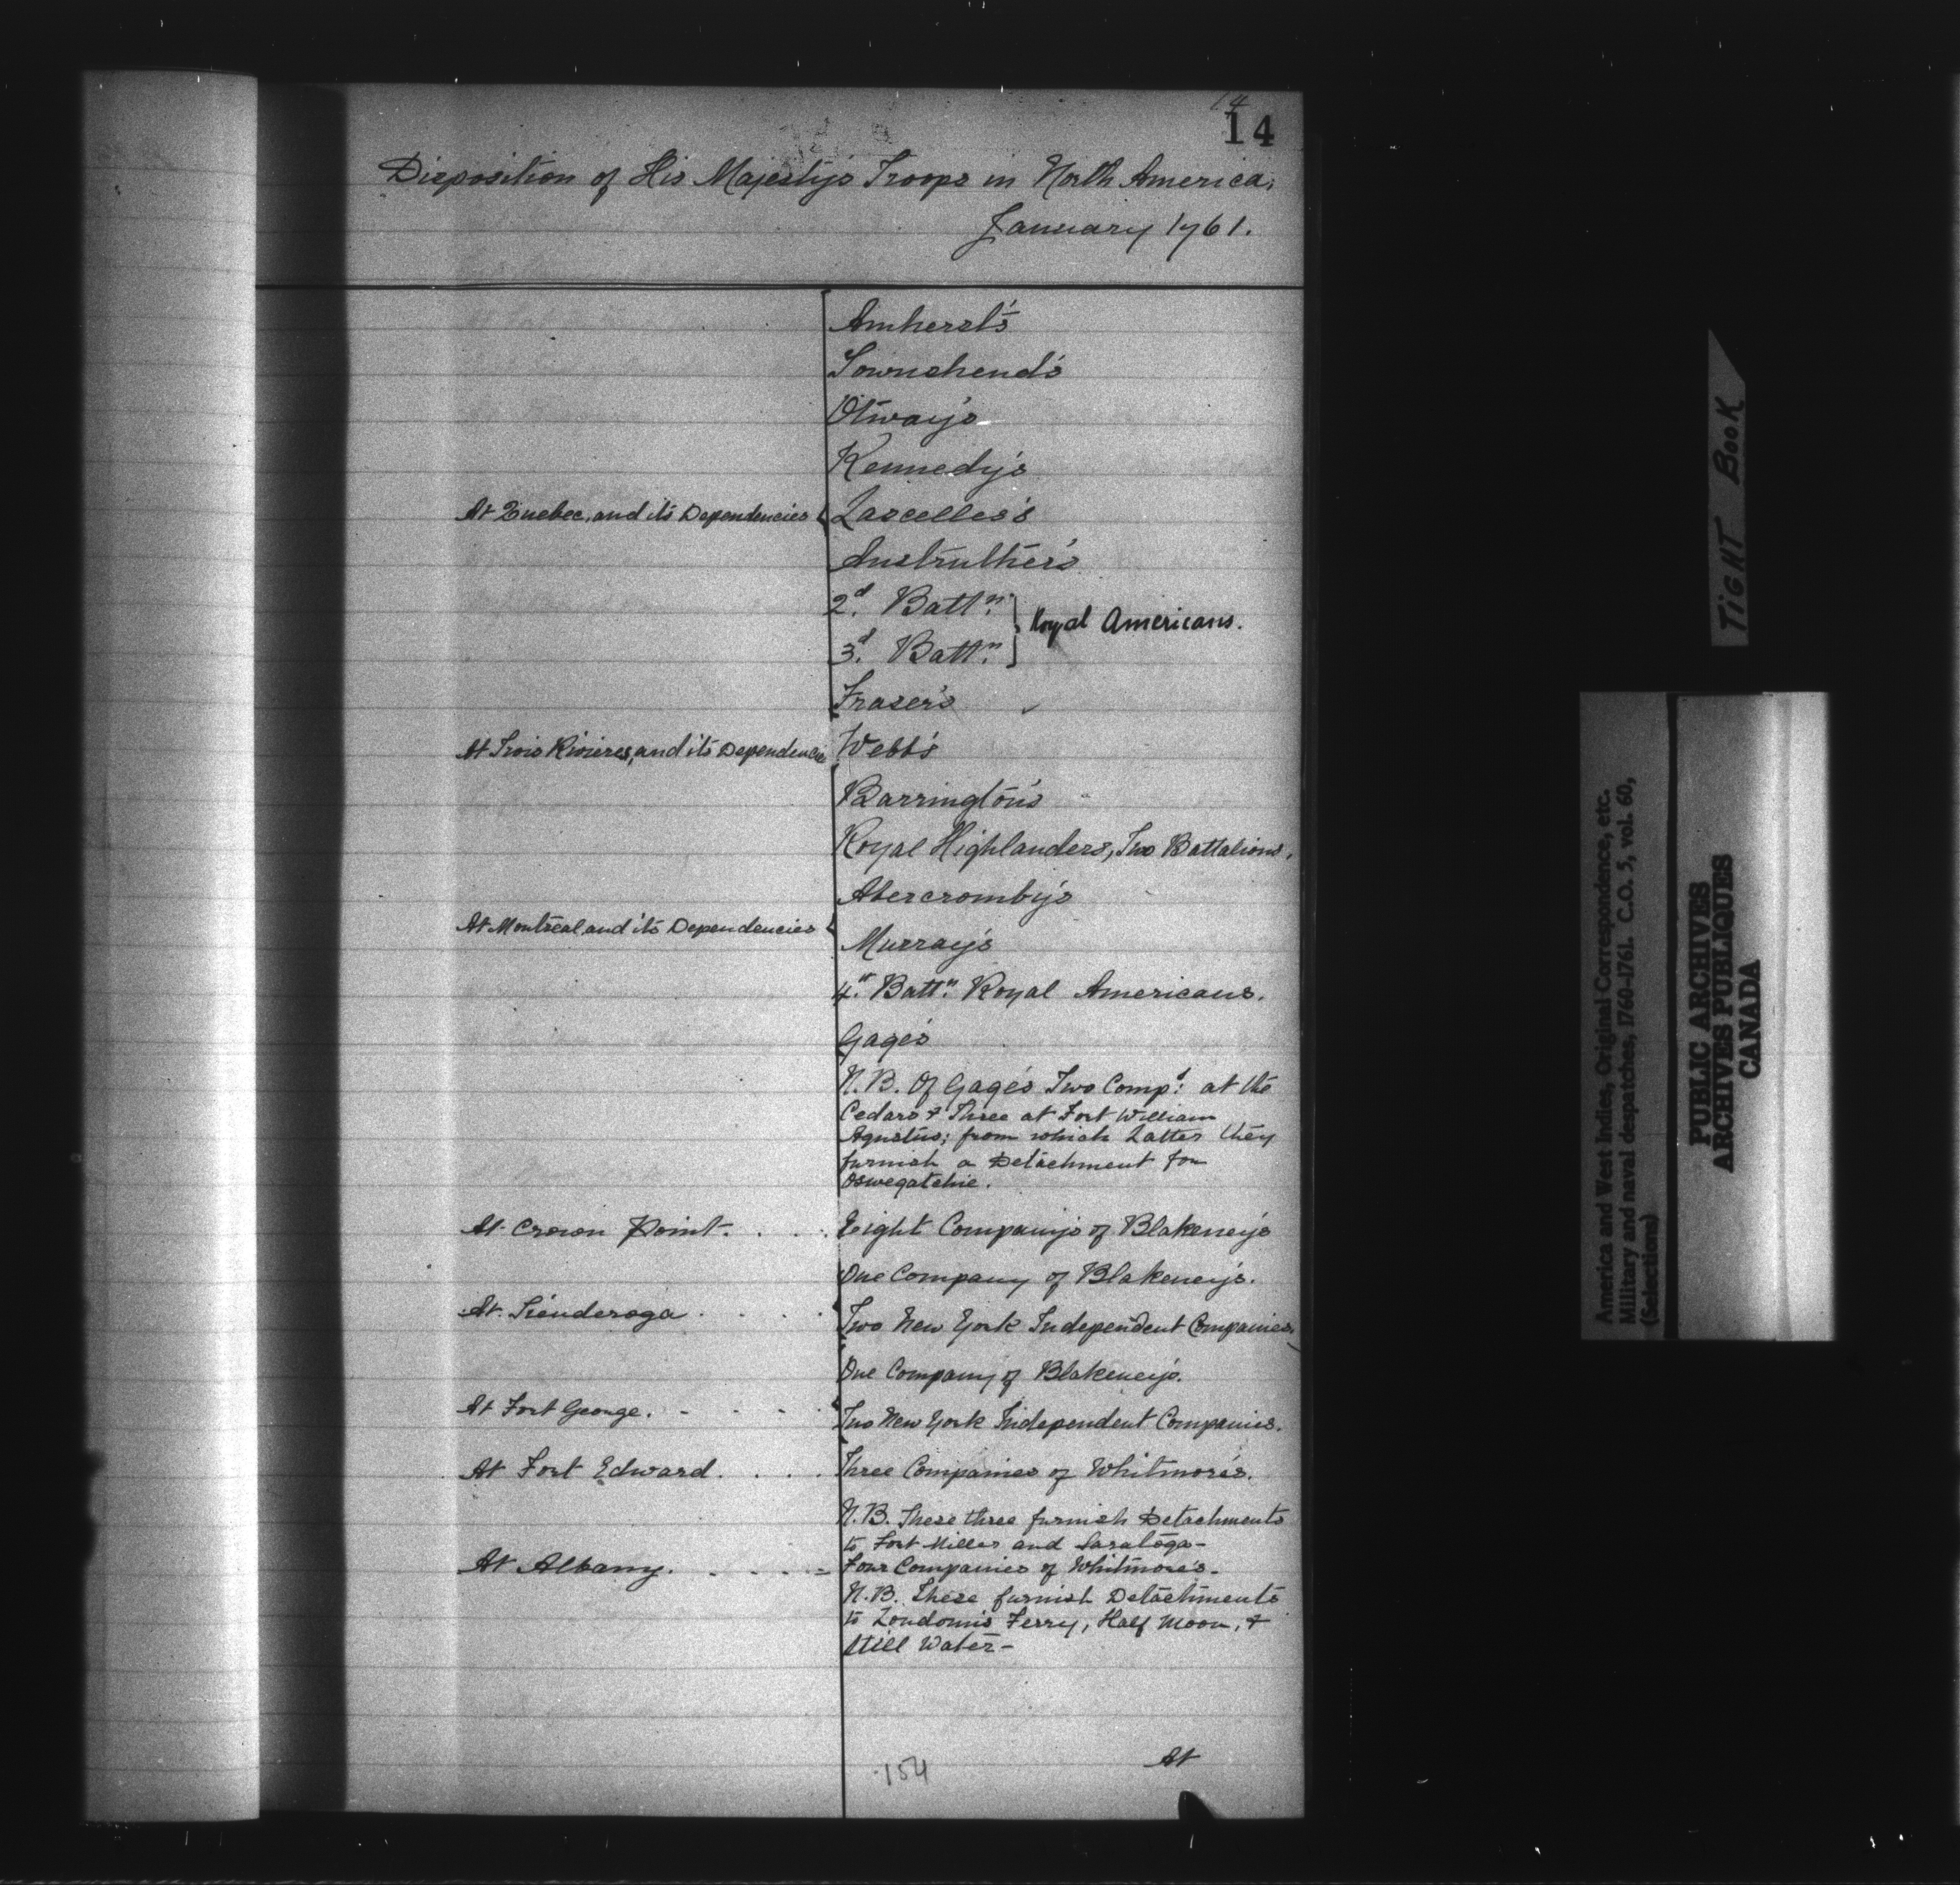 14
14
Disposition of His Majesty's Troops in North America;
January 1761.
Amherst's
Townshend's
Otway's
Kennedy's
At Quebec, and its Dependencies Lascelles's
Anstruther's
2d. Battn.
Royal Americans.
3d. Battn.
Fraser's
At Trois Rivieres, and its Dependencies Webb's
Barrington's
Royal Highlanders, Two Battalions.
Abercromby's
At Montreal and its Dependencies
Murray's
4th. Battn. Royal Americans.
Gage's
N.B. Of Gage's Two Comps: at the
Cedars & Three at Fort William
Agustus; from which Latter they
furnish a Detachment for
Oswegatchie.
At Crown Point. . . . Eight Company's of Blakeney's
One Company of Blakeney's.
At Tienderoga . . . .
Two New York Independent Companies.
One Company of Blakeney's.
At Fort George. - - - .
Two New York Independent Companies.
At Fort Edward. . . . Three Companies of Whitmore's.
N.B. These three furnish Detachments
to Fort Miller and Saratoga-
At Albany. . . . - Four Companies of Whitmore's.
N.B. These furnish Detachments
to Loudoun's Ferry, Half Moon, &
Still Water-
At
154
TIGHT BOOK
America and West Indies, Original Correspondence, etc.
Military and naval despatches, 1760-1761. C.O. 5, vol. 60,
(Selections)
PUBLIC ARCHIVES
ARCHIVES PUBLIQUES
CANADA